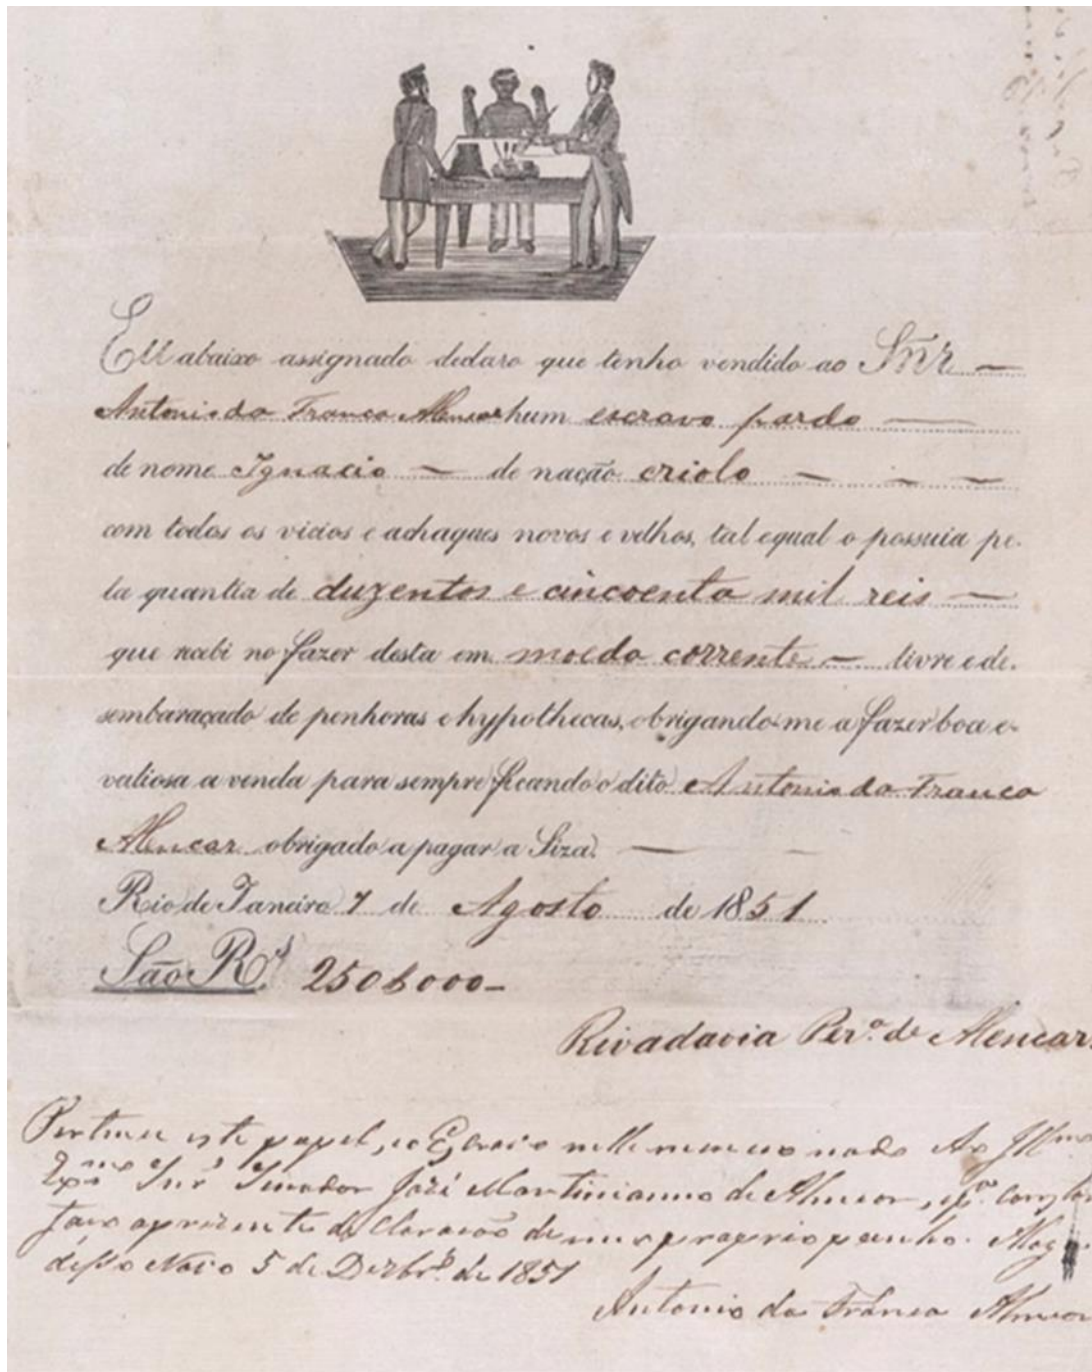 Eu abaixo assignado declaro que tenho vendido ao Snr
Antonio da Franca Alencar hum escravo pardo
de nome Ignacio de nação criolo
com todos os vicios e achaques novos e velhos, tal equal o possuia pe-
la quantia de duzentos e cincoenta mil reis
que recebi no fazer desta em moeda corrente livre e de-
sembaraçado de penhoras e hypothecas, obrigando-me a fazer boa e
valiosa a venda para sempre ficando o dito Antonio da Franca
Alencar obrigado a pagar a Siza.
Rio de Janeiro 7 de Agosto de 1851
São Rs. 250$000
Rivadavia Per.ª de Alencar
Pertence este papel, e o Escravo nelle mencionado Ao Illmo
Exmo Snr Senador José Martinianno de Alencar, e pª constar
faço a prezente declaração de meu proprio punho.
5 de Dezbr.º de 1851
Antonio da Franca Alencar